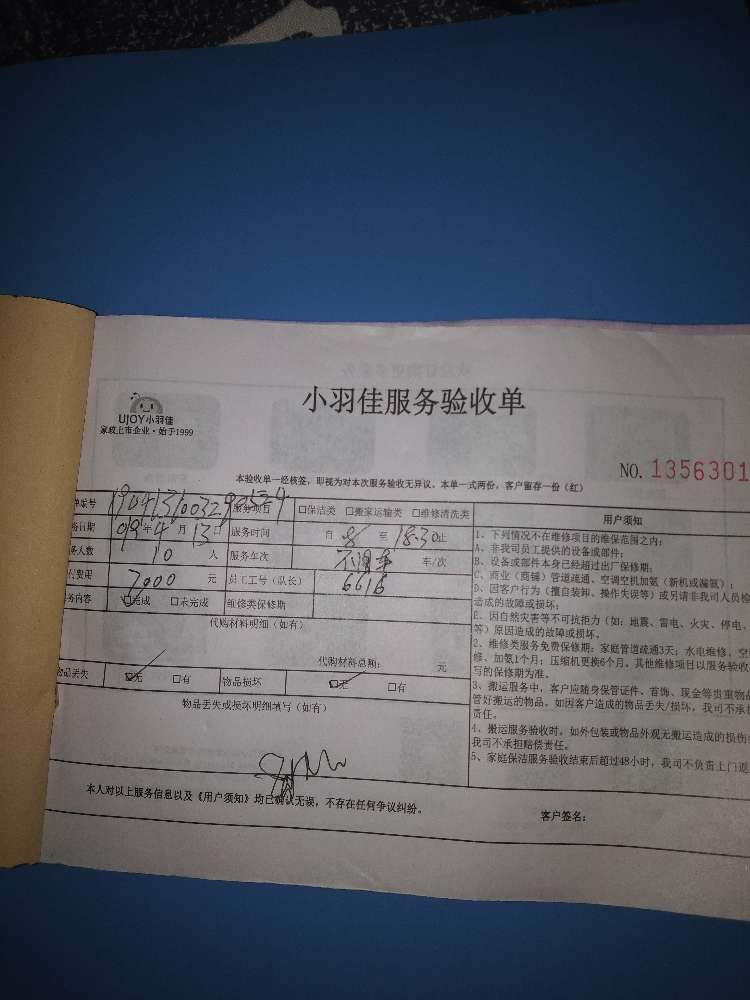 小羽佳服务验收单
UJOY小羽佳
家政上市企业·始于1999
本验收单一经核签，即视为对本次服务验收无异议。本单一式两份，客户留存一份（红）
NO. 1356301
单编号 服务项目 □保洁类 □搬家运输类 □维修清洗类
务日期 09年4月13日 服务时间 自 8 至 18:30止
务人数 10 人 服务车次 车/次
付费用 7000 元 员工工号（队长） 6616
务内容 ☑完成 □未完成 维修类保修期
代购材料明细（如有）
代购材料总额： 元
物品丢失 ☑无 □有 物品损坏 ☑无 □有
物品丢失或损坏明细填写（如有）
用户须知
1、下列情况不在维修项目的维保范围之内：
A、非我司员工提供的设备或部件；
B、设备或部件本身已经超过出厂保修期；
C、商业（商铺）管道疏通、空调空机加氨（新机或漏氨）；
D、因客户行为（擅自装卸、操作失误等）或另请非我司人员检
造成的故障或损坏；
E、因自然灾害等不可抗拒力（如：地震、雷电、火灾、停电、
等）原因造成的故障或损坏。
2、维修类服务免费保修期：家庭管道疏通3天；水电维修、空
修、加氨1个月；压缩机更换6个月。其他维修项目以服务验收
写的保修期为准。
3、搬运服务中，客户应随身保管证件、首饰、现金等贵重物品
管好搬运的物品。如因客户造成的物品丢失/损坏，我司不承担
责任。
4、搬运服务验收时，如外包装或物品外观无搬运造成的损伤
我司不承担赔偿责任。
5、家庭保洁服务验收结束后超过48小时，我司不负责上门返
本人对以上服务信息以及《用户须知》均已确认无误，不存在任何争议纠纷。
客户签名：